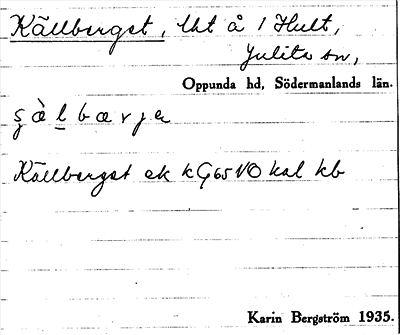 Källberget, lht å 1 Hult,
Julita sn,
Oppunda hd, Södermanlands län.
Källberget ek kG65NO kal kb
Karin Bergström 1935.